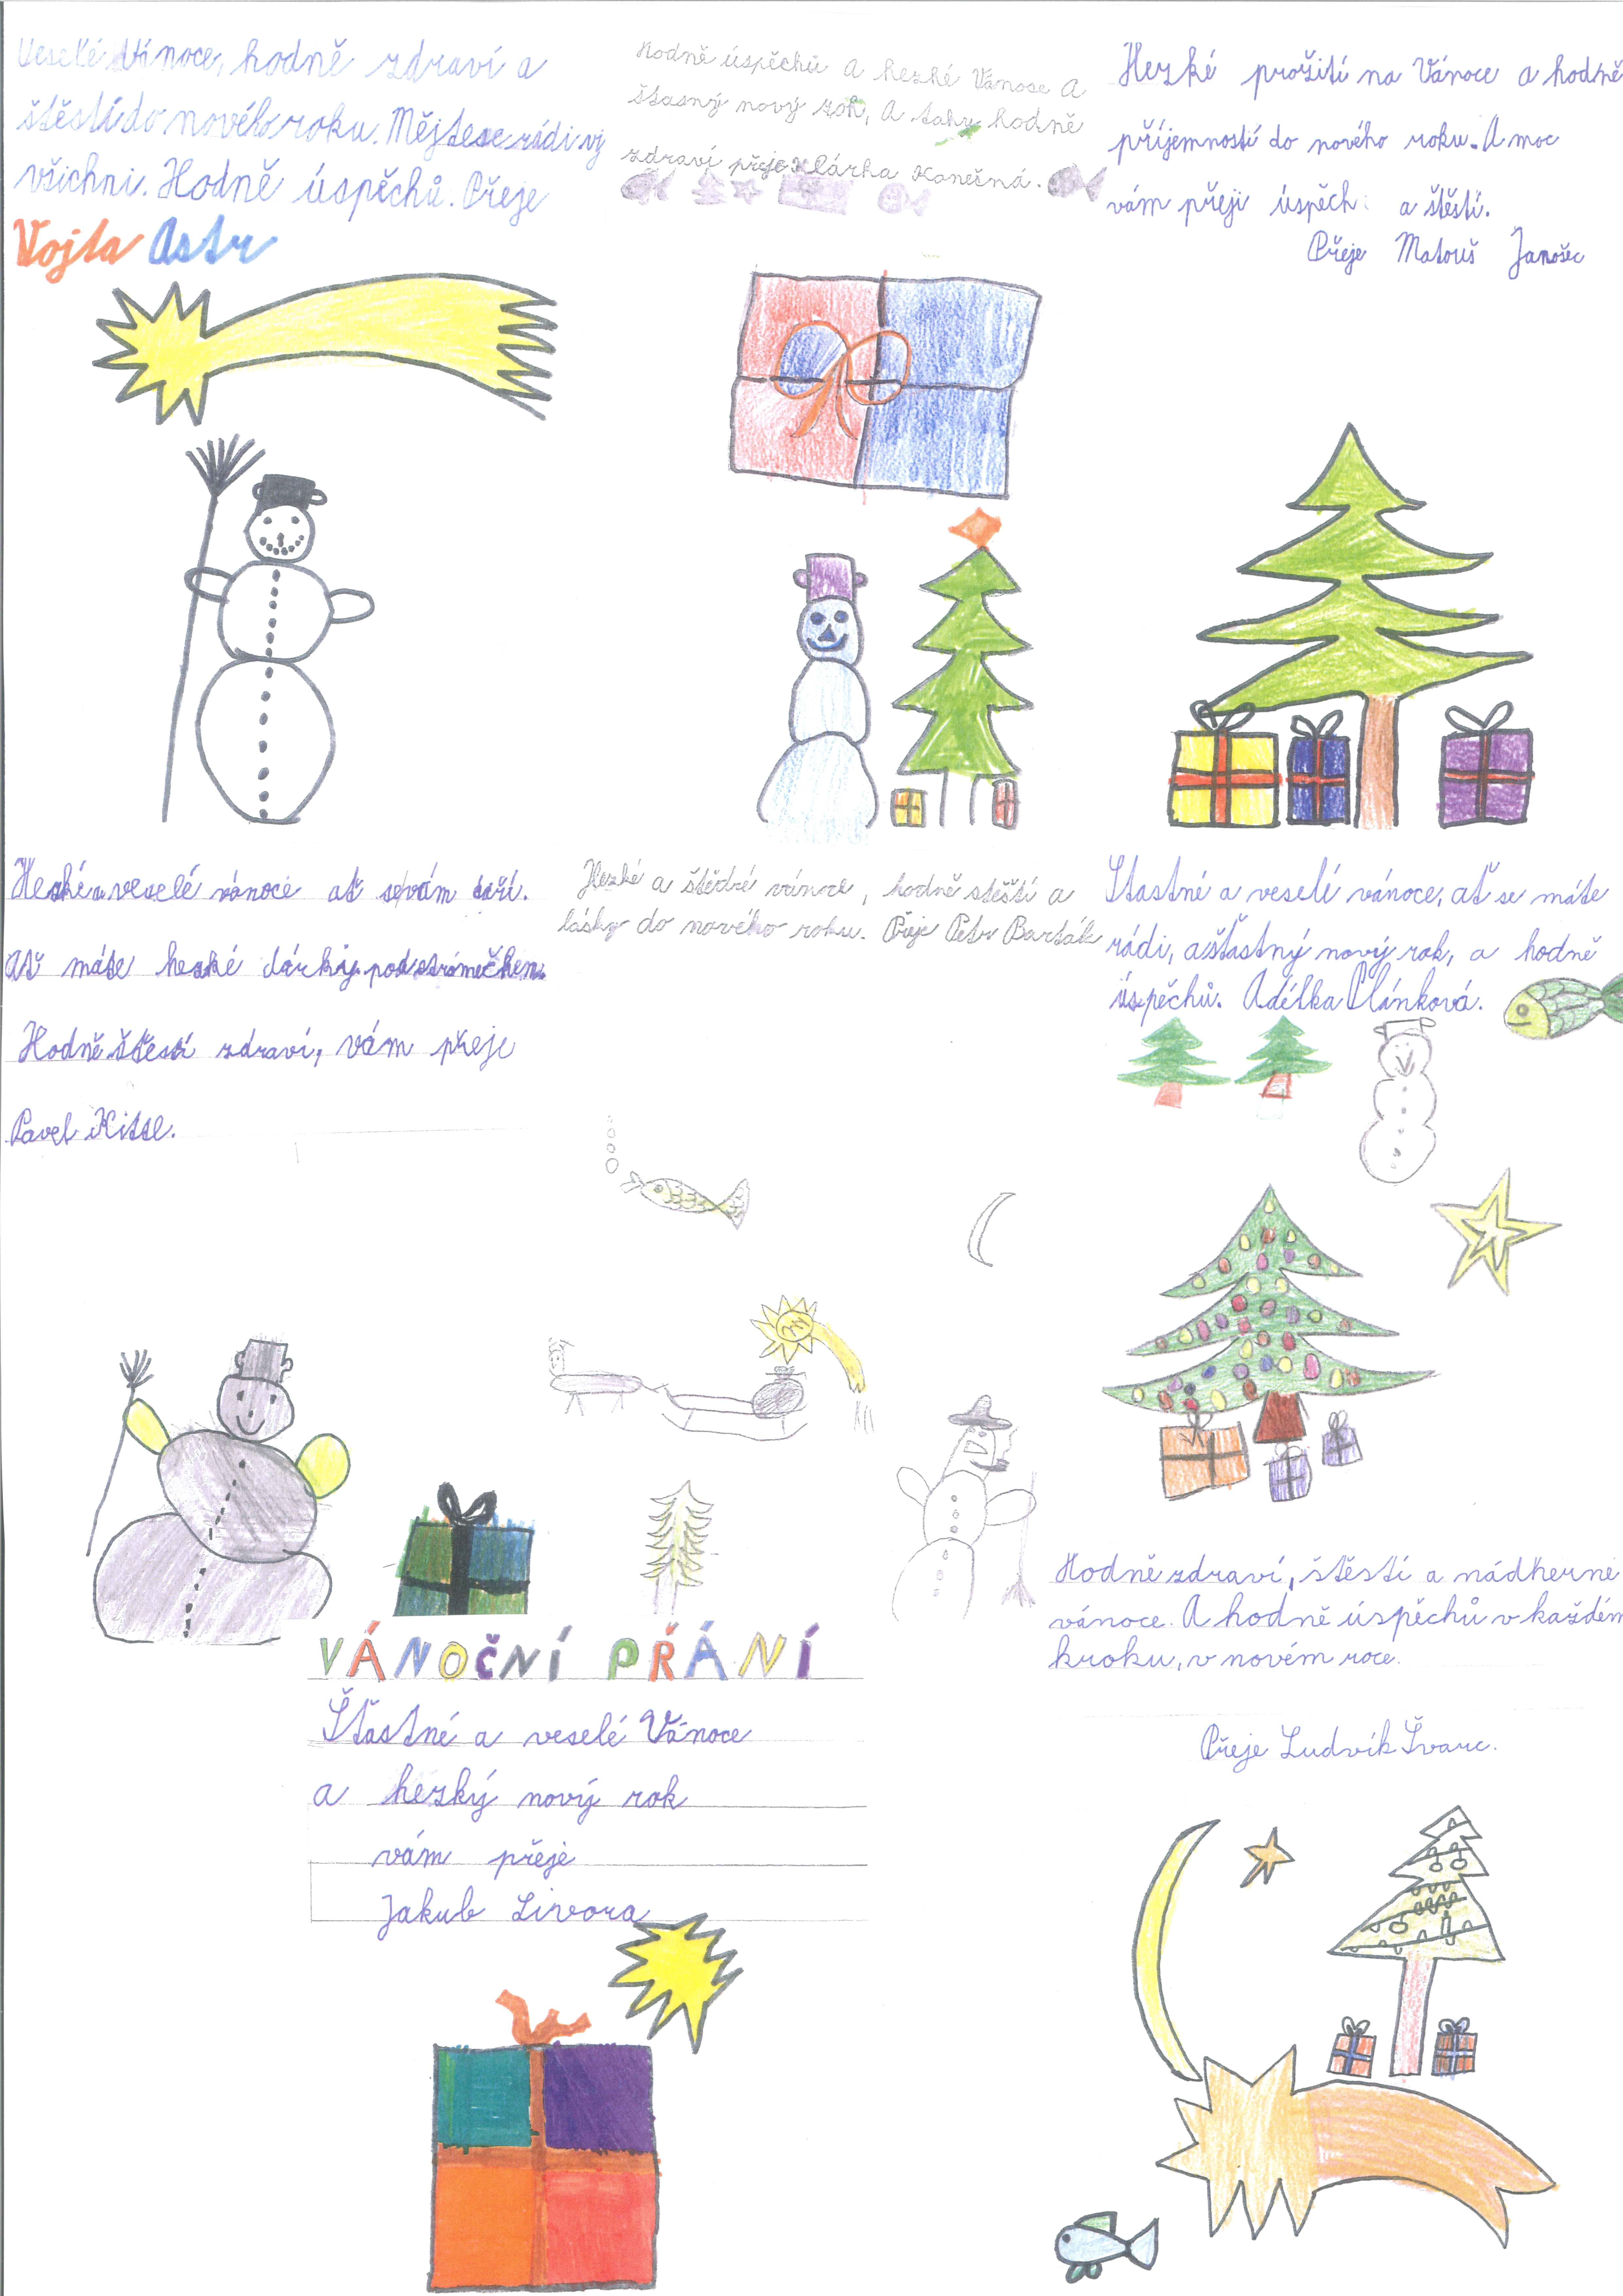 Veselé Vánoce, hodně zdraví a
štěstí do nového roku. Mějte se rádi vy
všichni. Hodně úspěchů. Přeje
Vojta Astr
Hodně úspěchů A hezké Vánoce A
štasný nový rok, A taky hodně
zdraví přeje Klárka Konečná.
Hezké prožití na Vánoce a hodně
příjemností do nového roku. A moc
vám přeji úspěch a štěstí.
Přeje Matouš Janošec
Hezké a veselé vánoce ať se vám daří.
Ať máte hezké dárky pod stromečkem.
Hodně štestí zdraví, vám přeje
Pavel Kittl.
Hezké a štědré vánoce, hodně stěští a
lásky do nového roku. Přeje Petr Barták
Štastné a veselé vánoce, ať se máte
rádi, a šťastný nový rok, a hodně
úspěchů. Adélka Plánková.
Hodně zdraví, štěstí a nádherné
vánoce. A hodně úspěchů v každém
kroku, v novém roce.
Přeje Ludvík Švarc.
VÁNOČNÍ PŘÁNÍ
Šťastné a veselé Vánoce
a hezký nový rok
vám přeje
Jakub Livora